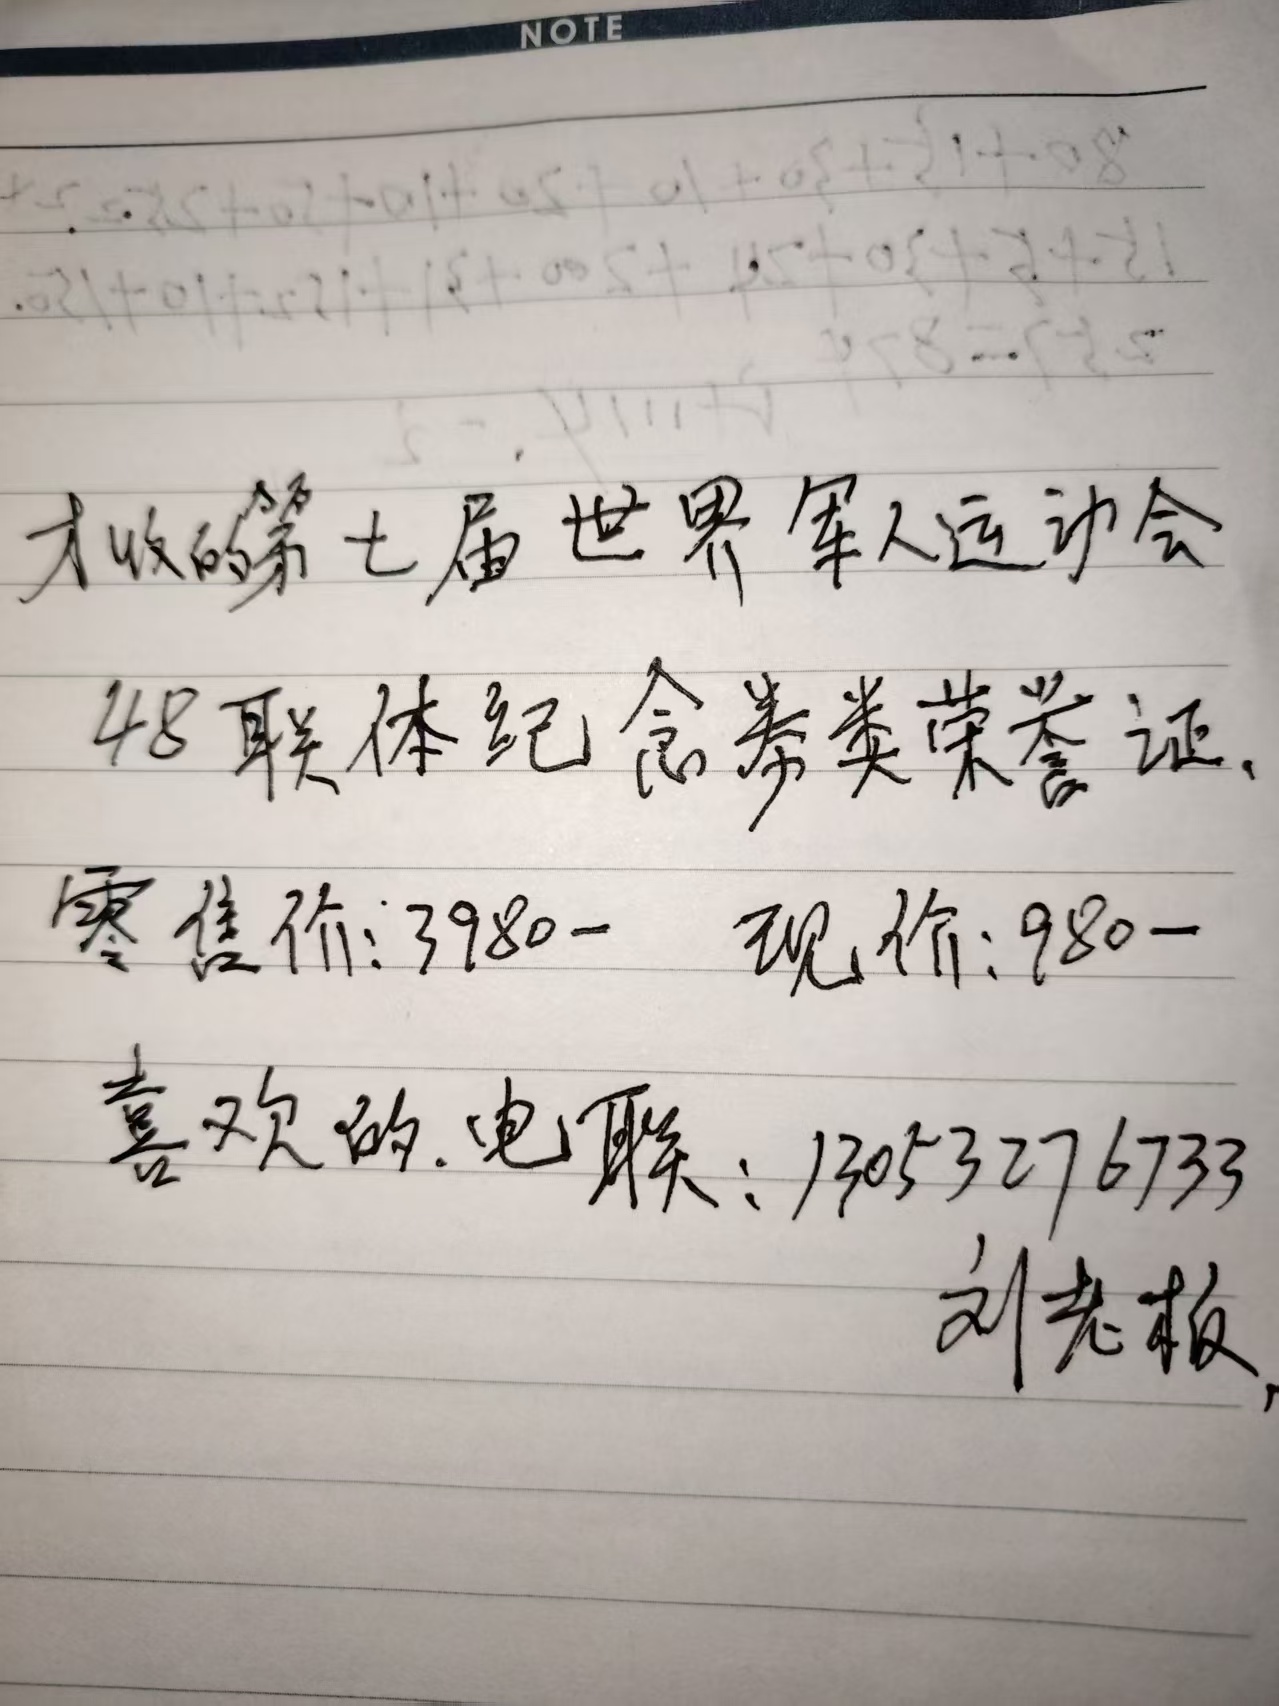 NOTE
才收的第七届世界军人运动会
48联体纪念券类荣誉证、
零售价:3980- 现价:980-
喜欢的.电联:13053276733
刘老板、